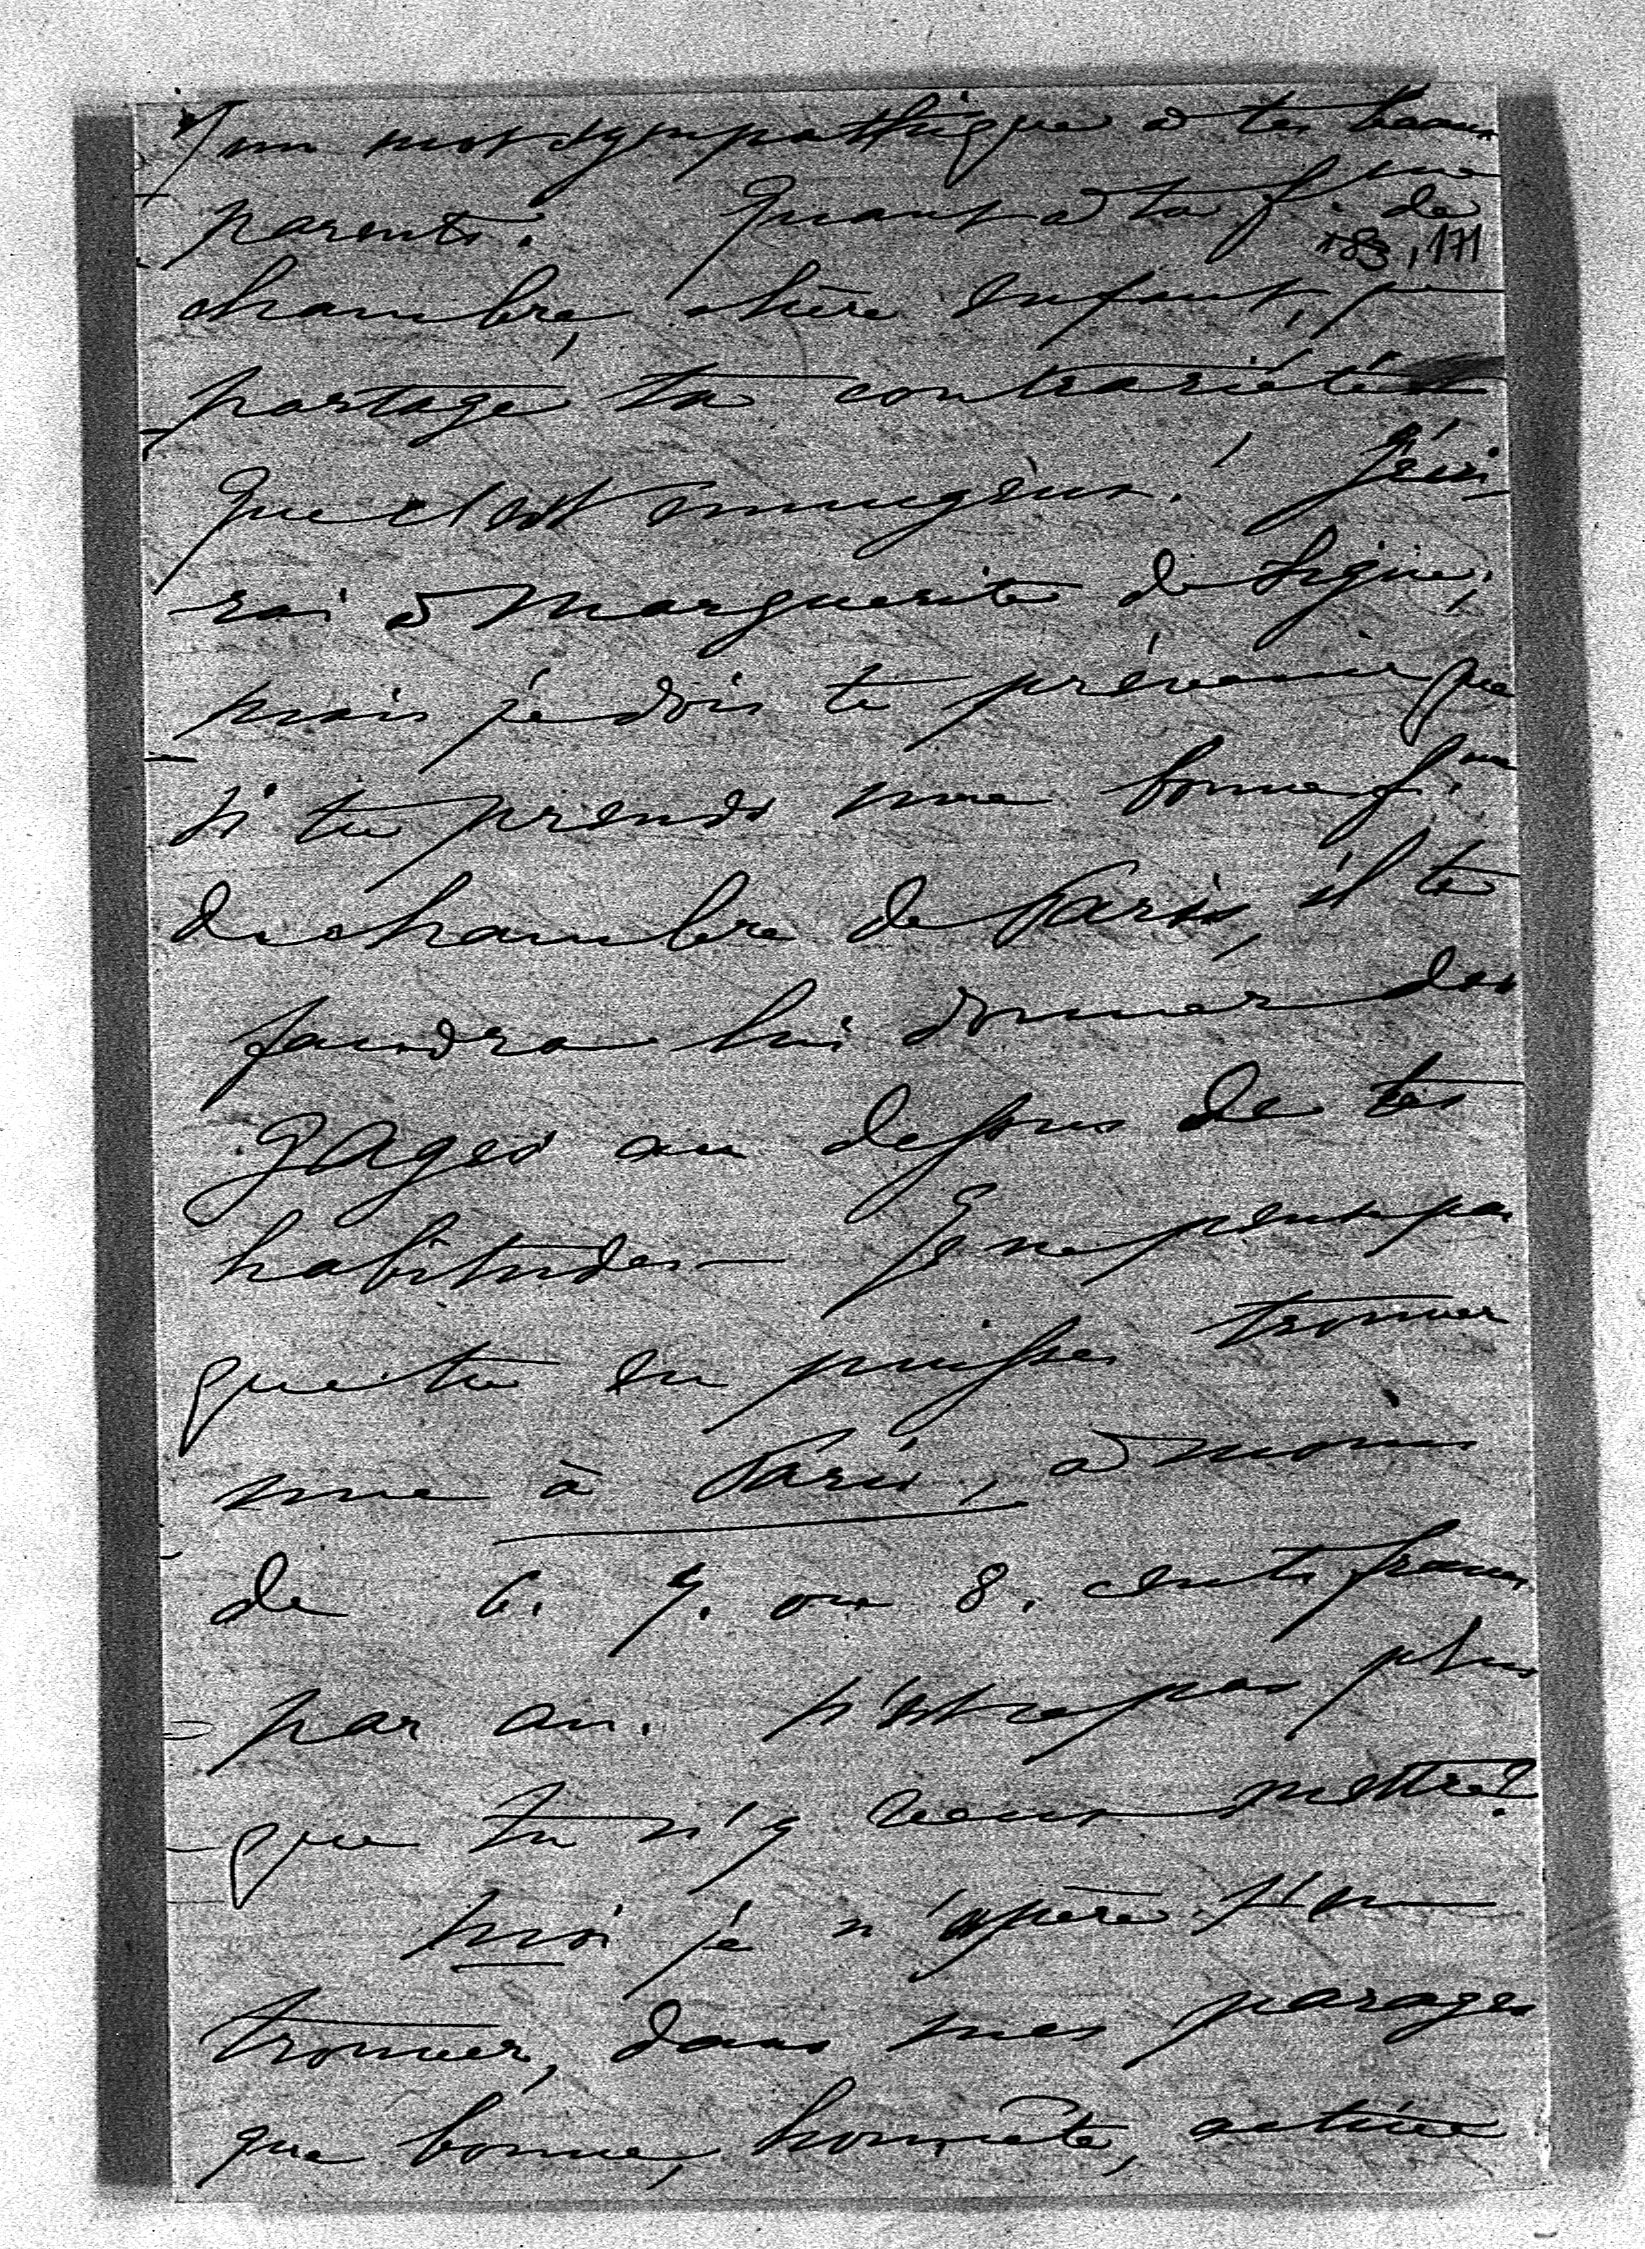 un mot sympathique à tes beaux
parents. Quant à ta f.me de
183, 171
chambre, chère enfant, je
partage ta contrariété
que c'est ennuyeux! J'écri
rai à Marguerite de Ligne,
mais je dois te prévenir que
si tu prends une bonne f.me
de chambre de Paris, il te
faudra lui donner des
gages au dessus de tes
habitudes — Je ne pense pas
que tu en puisses trouver
une à Paris, à moins
de 6. 7. ou 8. cents francs
par an. N'est-ce pas plus
que tu n'y veux mettre?
Moi je n'espère t'en
trouver, dans mes parages
que bonne, honnête, active